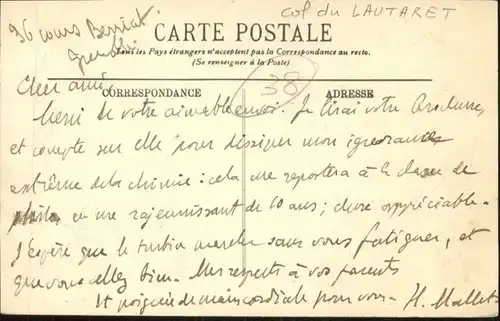 36 cours Berriat
Grenoble
col du LAUTARET
CARTE POSTALE
Tous les Pays étrangers n'acceptent pas la Correspondance au recto.
(Se renseigner à la Poste)
38
CORRESPONDANCE
ADRESSE
Cher ami,
Merci de votre aimable envoi. Je lirai votre brochure,
et compte sur elle pour dissiper mon ignorance
extrême de la chimie : cela me reportera à la classe de
philo en me rajeunissant de 10 ans ; chose appréciable.
J'espère que le turbin marche sans vous fatiguer, et
que vous allez bien. Mes respects à vos parents
Et poignée de main cordiale pour vous. H. Mallet